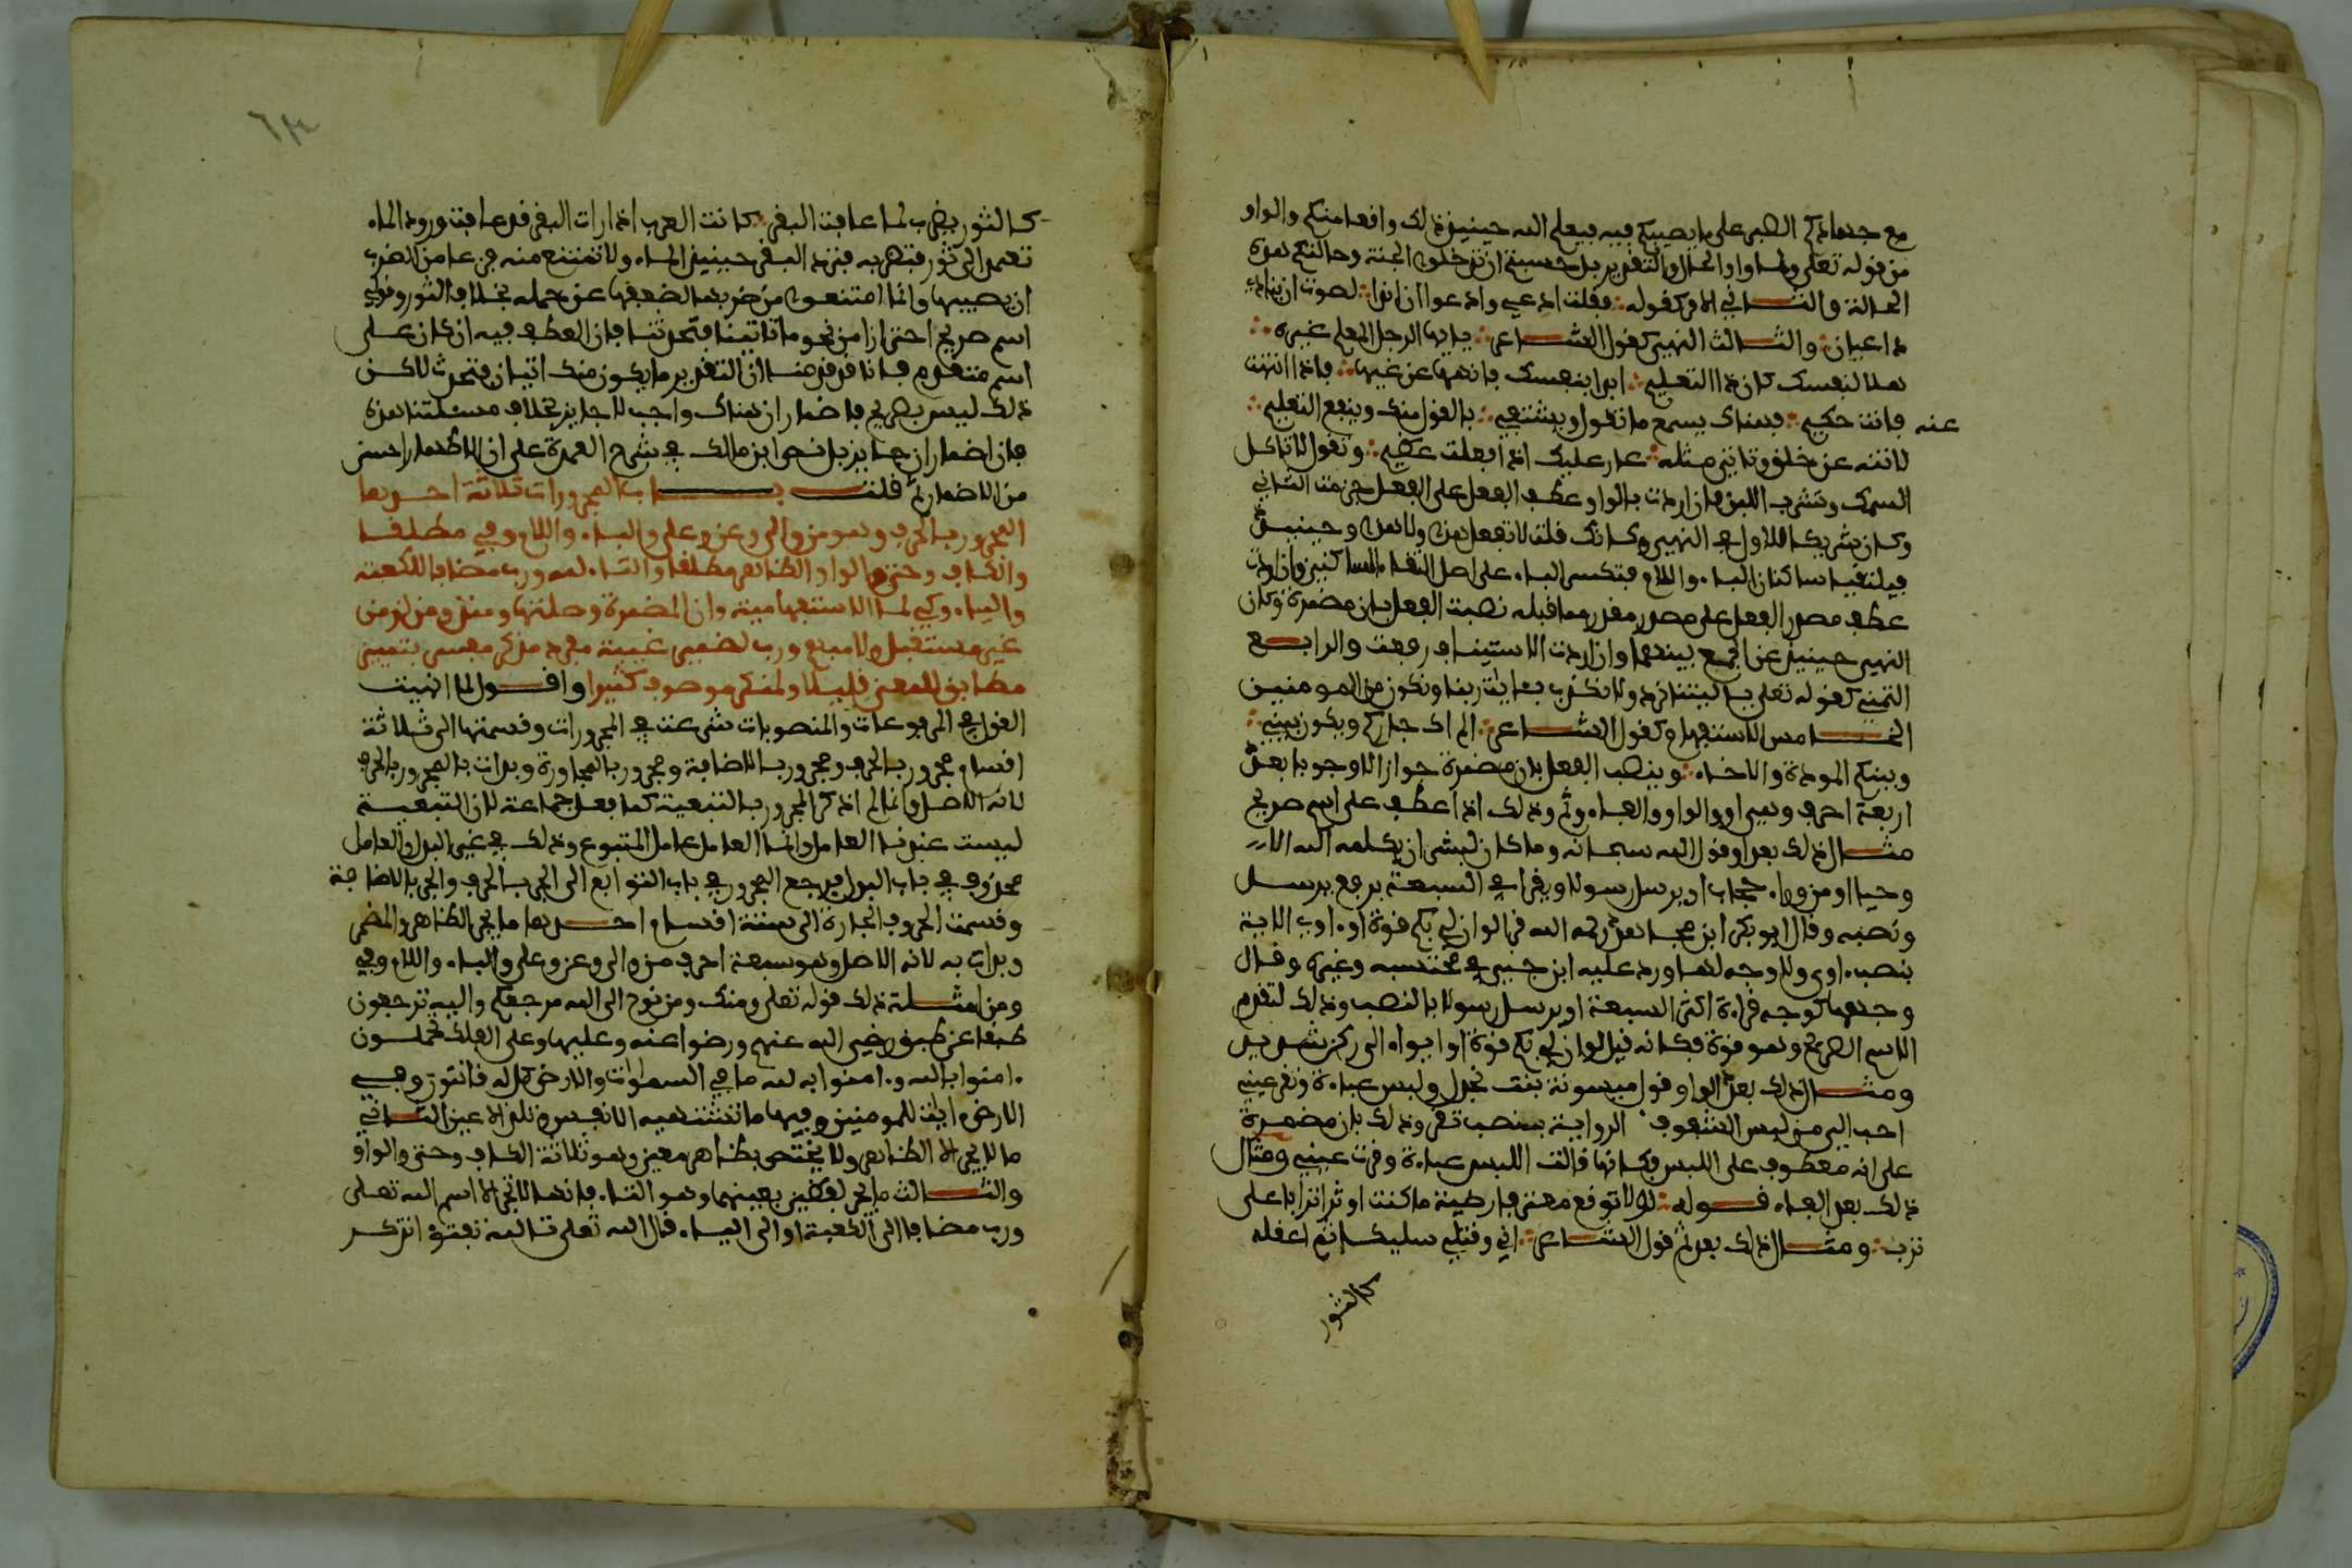 مع جهادكم الصبر على ما يصيبكم فيه فيعلم الله حينئذ ذلك واقعا منكم والواو
من قوله تعلى ولما واو الحال والتقدير بل حسبتم ان تدخلوا الجنة وحالتكم هذه
الحالة والثاني الامر كقوله فقلت ادعي وادعوا ان اندا لصوت ان ينادي
داعيان والثالث النهي كقول الشاعر يايها الرجل المعلم غيره
هلا لنفسك كان ذا التعليم ابدا بنفسك فانهها عن غيها فاذا انتهت
عنه فانت حكيم فهناك يسمع ما تقول ويشتفى بالقول منك وينفع التعليم
لاتنه عن خلق وتاتي مثله عار عليك اذا فعلت عظيم وتقول لا تاكل
السمك وتشرب اللبن فان اردت بالواو عطف الفعل على الفعل جزمت الثاني
وكان شريكا للاول في النهي وكانك قلت لا تفعل هذا ولا هذا وحينئذ
فيلتقيا ساكنان الباء واللام فتكسر الباء على اصل التقاء الساكنين وان اردت
عطف مصدر الفعل على مصدر مقدر مما قبله نصبت الفعل بان مضمرة وكان
النهي حينئذ عن الجمع بينهما وان اردت الاستيناف رفعت والرابع
التمني كقوله تعلى يا ليتنا نرد ولا نكذب بايات ربنا ونكون من المومنين
الخامس الاستفهام كقول الشاعر الم اك جاركم ويكون بيني
وبينكم المودة والاخاء وينصب الفعل بان مضمرة جوازا لا وجوبا بعد
اربعة احرف وهي او والواو والفاء وثم وذلك اذا عطف على اسم صريح
مثال ذلك بعد او قول الله سبحانه وما كان لبشر ان يكلمه الله الا
وحيا او من وراء حجاب او يرسل رسولا ويقرا في السبعة برفع يرسل
ونصبه وقال ابو بكر ابن مجاهد رحمه الله قرا لو ان لي بكم قوة او اوي الاية
بنصب اوي ولا وجه لها ورد عليه ابن جني في محتسبه وغيره وقال
وجهها كوجه قراءة اكثر السبعة او يرسل رسولا بالنصب وذلك لتقدم
الاسم الصريح وهو قوة فكانه قيل لو ان لي بكم قوة او ايواء الى ركن شديد
ومثال ذلك بعد الواو قول ميسونة بنت بحدل ولبس عباءة وتقر عيني
احب الي من لبس الشفوف الرواية بنصب تقر وذلك بان مضمرة
على انه معطوف على اللبس فكانها قالت اللبس عباءة وقرت عيني ومثال
ذلك بعد الفاء قوله لولا توقع معتر فارضيه ما كنت اوثر اترابا على
ترب ومثال ذلك بعد ثم قول الشاعر اني وقتلي سليكا ثم اعقله
كالثور
كالثور يضرب لما عافت البقر كانت العرب اذا رات البقر قد عافت ورود الماء
تعمد الى ثور فتضربه فترد البقر حينئذ الماء ولا تمتنع منه فزعا من الضرب
ان يصيبها وانما امتنعوا من ضربها لضعفها عن حمله بخلاف الثور وقولي
اسم صريح احترازا من نحو ما تاتينا فتحدثنا فان العطف فيه ان كان على
اسم متقدم فانا قد قدمنا ان التقدير ما يكون منك اتيان فتحدث لاكن
ذلك ليس بصريح فاضمار ان هناك واجب لا جايز بخلاف مسئلتنا هذه
فان اضمار ان جايز بل نص ابن مالك في شرح العمدة على ان الاظهار احسن
من الاضمار ثم قلت باب المجرورات ثلاثة احدها
المجرور بالحرف وهو من والى وعن وعلى والباء واللام وفي مطلقا
والكاف وحتى والواو الظاهر مطلقا والتاء لله ورب مضافا للكعبة
والياء وكي لما الاستفهامية وان المضمرة وصلتها ومنذ ومذ لزمن
غير مستقبل ولا مبهم ورب لضمير غيبة مفرد مذكر مفسر بتمييز
مطابق للمعنى قليلا ولمنكر موصوف كثيرا واقول لما انهيت
القول في المرفوعات والمنصوبات شرعت في المجرورات وقسمتها الى ثلاثة
اقسام مجرور بالحرف ومجرور بالاضافة ومجرور بالمجاورة وبدات بالمجرور بالحرف
لانه الاصل وانما لم اذكر المجرور بالتبعية كما فعل جماعة لان التبعية
ليست عندنا العامل وانما العامل عامل المتبوع وذلك في غير البدل والعامل
محذوف في باب البدل فرجع المجرور في باب التوابع الى الجر بالحرف والجر بالاضافة
وقسمت الحروف الجارة الى ستة اقسام احدها ما يجر الظاهر والمضمر
وبدات به لانه الاصل وهو سبعة احرف من والى وعن وعلى والباء واللام وفي
ومن امثلة ذلك قوله تعلى ومنك ومن نوح الى الله مرجعكم واليه ترجعون
طبقا عن طبق رضي الله عنهم ورضوا عنه وعليها وعلى الفلك تحملون
امنوا بالله وامنوا به لله ما في السموات والارض كل له قانتون وفي
الارض ايات للمومنين وفيها ما تشتهيه الانفس وتلذ الاعين الثاني
ما لا يجر الا الظاهر ولا يختص بظاهر معين وهو ثلاثة الكاف وحتى والواو
والثالث ما يجر لفظين بعينهما وهو التاء فانها لا تجر الا اسم الله تعلى
ورب مضافا الى الكعبة او الى الياء قال الله تعلى تالله تفتؤ تذكر